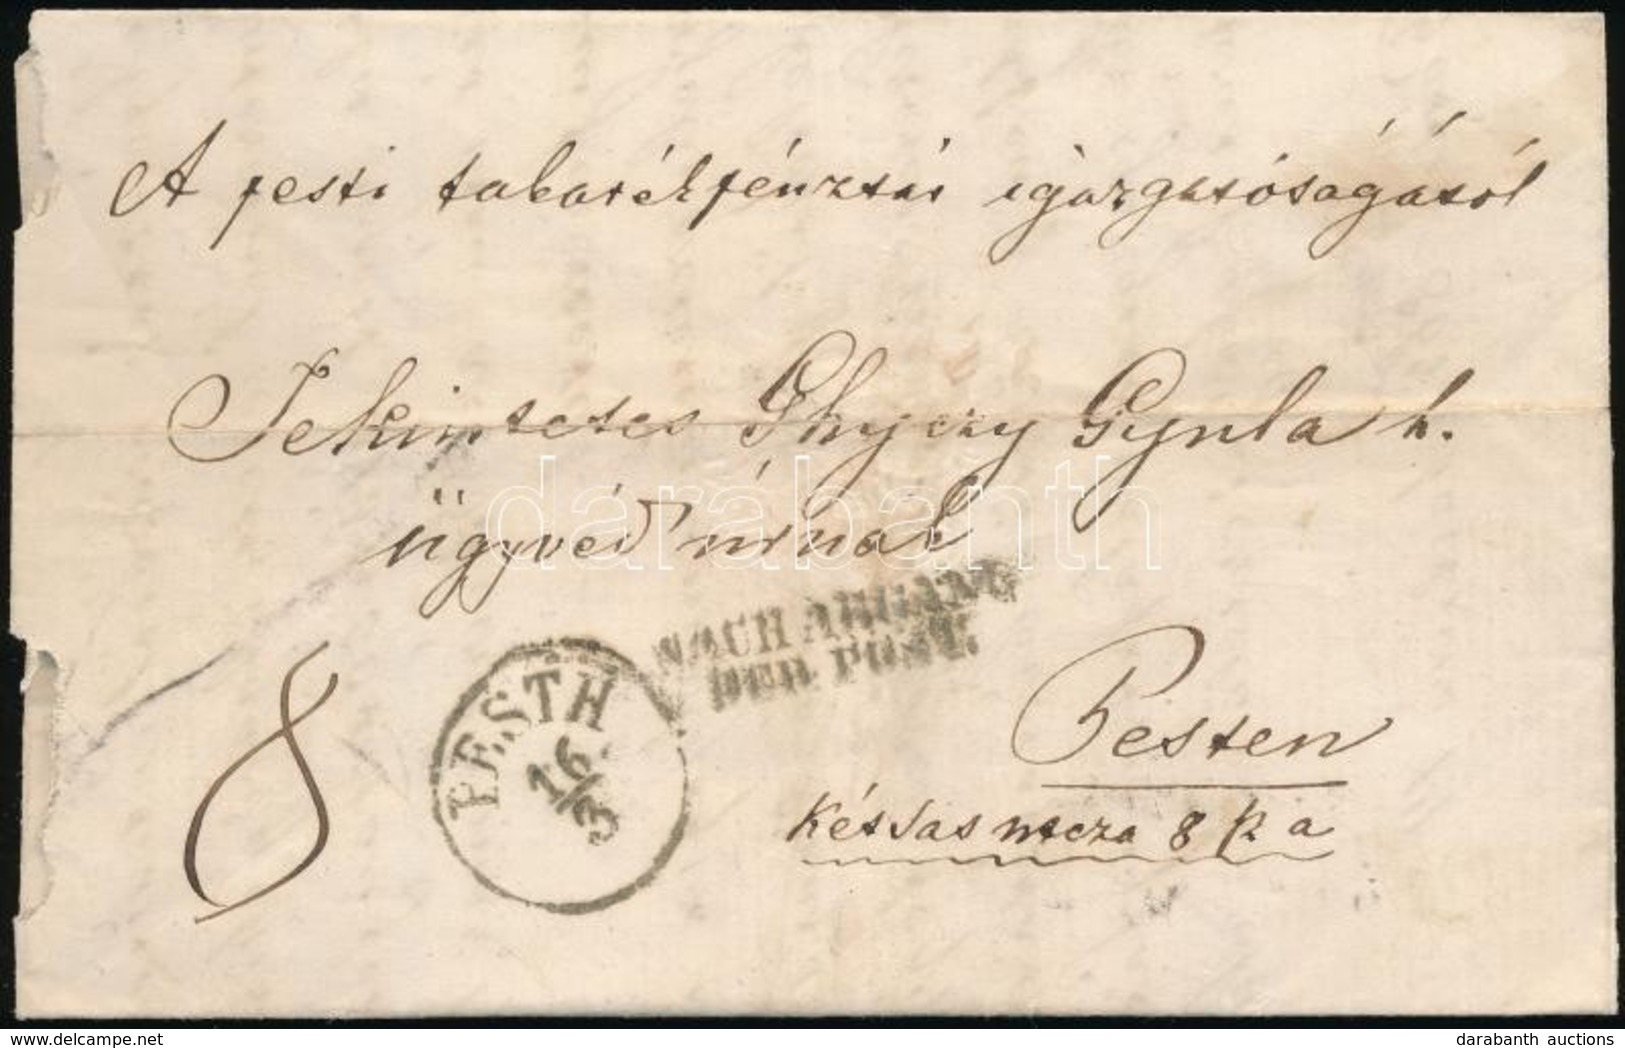 A pesti takarékpénztár igazgatóságától
Tekintetes Ghyczy Gyula h.
ügyvéd úrnak
darabanth
NACH ABGANG
DER POST.
PESTH
16/3
8
Pesten
Kétsas utcza 8 
darabanth auctions
www.delcampe.net